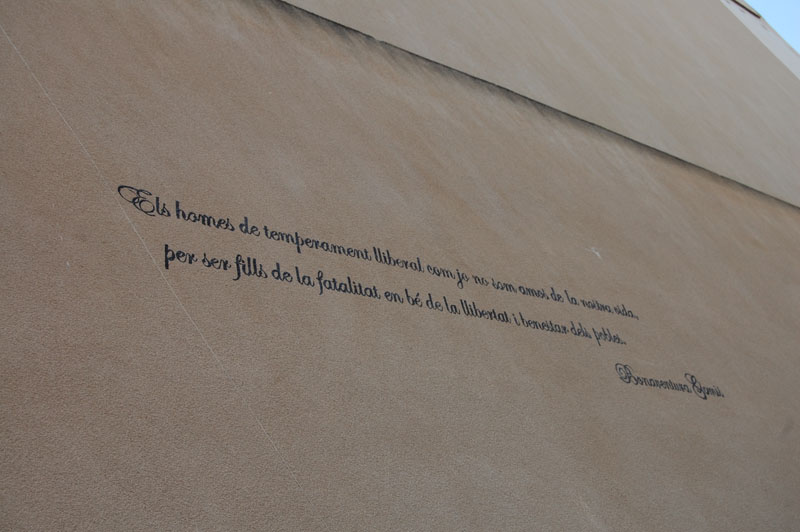 Els homes de temperament lliberal com jo no som amos de la nostra vida,
per ser fills de la fatalitat en bé de la llibertat i benestar dels pobles.
Bonaventura